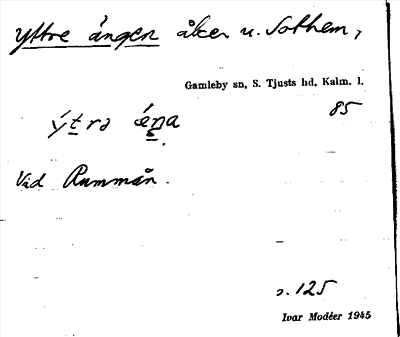 Yttre ängen åker u. Solhem,
Gamleby sn, S. Tjusts hd, Kalm. l.
85
ý t rə
Vid Rummån.
s. 125
Ivar Modéer 1945